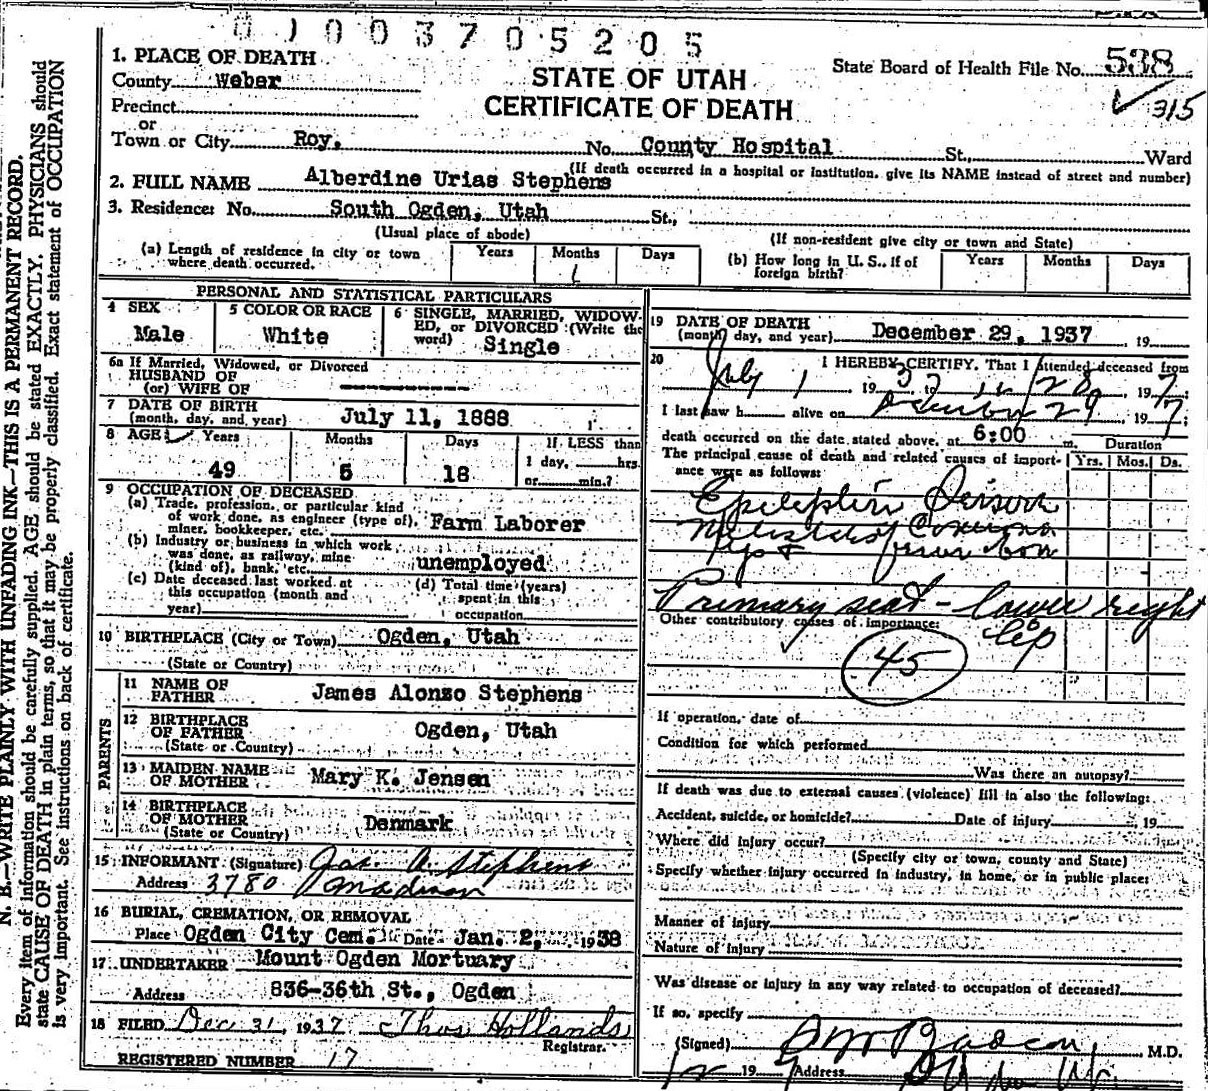 0 1 0 0 3 7 0 5 2 0 5
N. B.—WRITE PLAINLY WITH UNFADING INK—THIS IS A PERMANENT RECORD.
Every item of information should be carefully supplied. AGE should be stated EXACTLY. PHYSICIANS should
state CAUSE OF DEATH in plain terms, so that it may be properly classified. Exact statement of OCCUPATION
is very important. See instructions on back of certificate.
1. PLACE OF DEATH
County Weber
Precinct
or
Town or City Roy. No. County Hospital St., Ward
STATE OF UTAH
CERTIFICATE OF DEATH
State Board of Health File No. 538
315
(If death occurred in a hospital or institution, give its NAME instead of street and number)
2. FULL NAME Alberdine Urias Stephens
3. Residence: No. South Ogden, Utah St.,
(Usual place of abode) (If non-resident give city or town and State)
(a) Length of residence in city or town where death occurred. Years Months 1 Days
(b) How long in U. S., if of foreign birth? Years Months Days
PERSONAL AND STATISTICAL PARTICULARS
4 SEX Male
5 COLOR OR RACE White
6 SINGLE, MARRIED, WIDOWED, or DIVORCED (Write the word) Single
6a If Married, Widowed, or Divorced
HUSBAND OF
(or) WIFE OF
7 DATE OF BIRTH
(month, day, and year) July 11, 1888
8 AGE Years Months Days If LESS than
49 5 18 1 day, hrs.
or min.?
9 OCCUPATION OF DECEASED
(a) Trade, profession, or particular kind of work done, as engineer (type of), miner, bookkeeper, etc. Farm Laborer
(b) Industry or business in which work was done, as railway, mine (kind of), bank, etc. unemployed
(c) Date deceased last worked at this occupation (month and year)
(d) Total time (years) spent in this occupation
10 BIRTHPLACE (City or Town) Ogden, Utah
(State or Country)
PARENTS
11 NAME OF FATHER James Alonzo Stephens
12 BIRTHPLACE OF FATHER Ogden, Utah
(State or Country)
13 MAIDEN NAME OF MOTHER Mary K. Jensen
14 BIRTHPLACE OF MOTHER
(State or Country) Denmark
15 INFORMANT (Signature) Jas. A. Stephens
Address 3780 Madison
16 BURIAL, CREMATION, OR REMOVAL
Place Ogden City Cem. Date Jan. 2, 1938
17 UNDERTAKER Mount Ogden Mortuary
Address 836-36th St., Ogden
18 FILED Dec 31, 1937 Thos Hollands
Registrar.
REGISTERED NUMBER 17
19 DATE OF DEATH
(month, day, and year) December 29, 1937, 19
20 I HEREBY CERTIFY, That I attended deceased from
July 1 1937 to 12/28, 1937
I last saw h alive on December 29 1937;
death occurred on the date stated above, at 6:00 m. Duration
The principal cause of death and related causes of importance were as follows: Yrs. Mos. Ds.
Primary seat - lower right
lip
Other contributory causes of importance:
45
If operation, date of
Condition for which performed
Was there an autopsy?
If death was due to external causes (violence) fill in also the following:
Accident, suicide, or homicide? Date of injury 19
Where did injury occur?
(Specify city or town, county and State)
Specify whether injury occurred in industry, in home, or in public place:
Manner of injury
Nature of injury
Was disease or injury in any way related to occupation of deceased?
If so, specify
(Signed) M.D.
19 Address